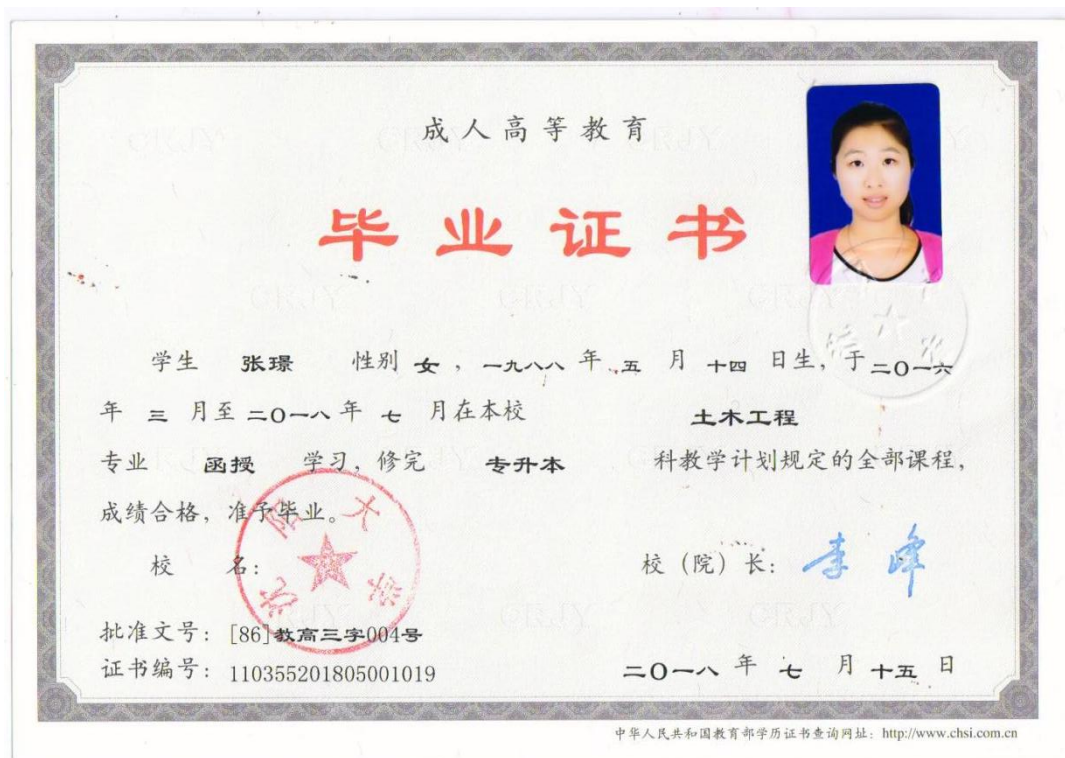 成人高等教育
毕业证书
学生 张璟 性别 女，一九八八年 五 月 十四 日生，于二〇一六
年 三 月至二〇一八年 七 月在本校 土木工程
专业 函授 学习，修完 专升本 科教学计划规定的全部课程，
成绩合格，准予毕业。
沈阳大学
校 名： 校（院）长：李峰
批准文号：[86]教高三字004号
证书编号：110355201805001019 二〇一八 年 七 月 十五 日
中华人民共和国教育部学历证书查询网址：http://www.chsi.com.cn